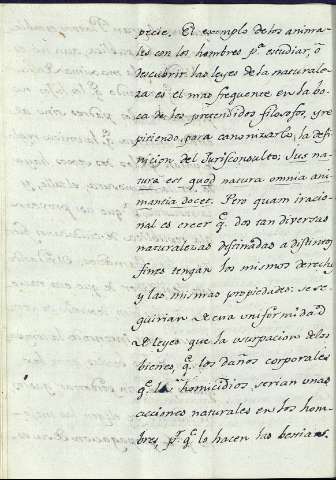 pecie. El exemplo de los anima-
les con los hombres pa. estudiar, ó
descubrir las leyes de la naturale-
za es el mas frequente en la bo-
ca de los pretendidos filosofos, y re-
pitiendo, para canonizarlo, la defi-
nicion del Jurisconsulto: Jus na-
tura est quod natura omnia ani-
mantia docet. Pero quam iracio-
nal es creer q. dos tan diversas
naturalezas destinadas a distintos
fines tengan los mismos derechos
y las mismas propiedades: se se-
guirian de esa uniformidad
de leyes que la usurpacion de los
bienes, q. los daños corporales
q. los homicidios serian unas
acciones naturales en los hom-
bres, pr. q. lo hacen las bestias.